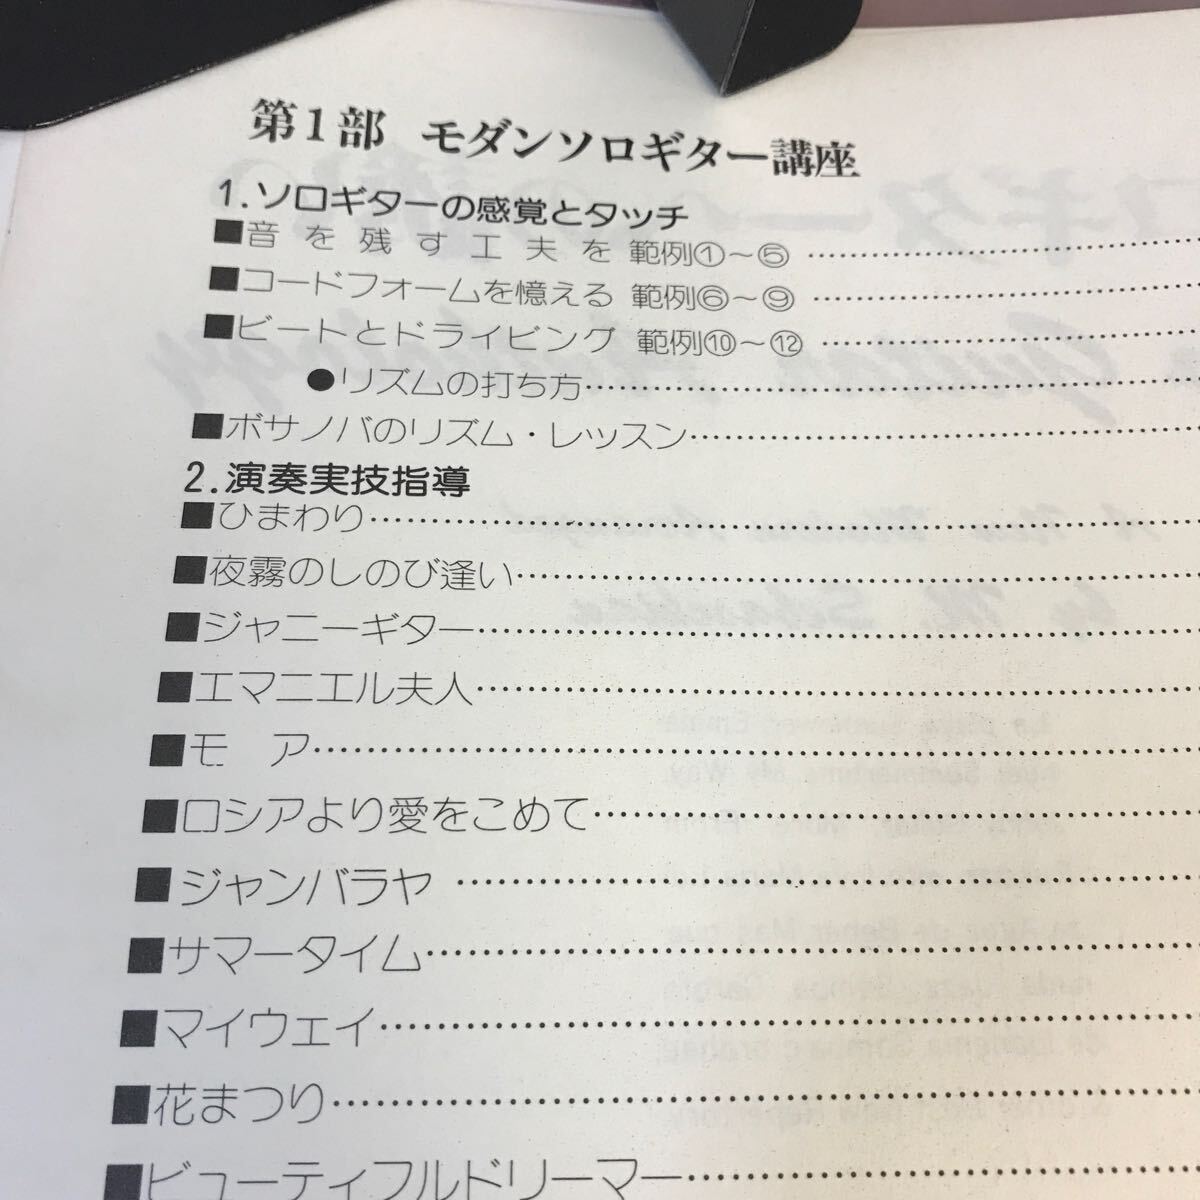 第1部 モダンソロギター講座
1.ソロギターの感覚とタッチ
■音を残す工夫を 範例①～⑤
■コードフォームを憶える 範例⑥～⑨
■ビートとドライビング 範例⑩～⑫
●リズムの打ち方
■ボサノバのリズム・レッスン
2.演奏実技指導
■ひまわり
■夜霧のしのび逢い
■ジャニーギター
■エマニエル夫人
■モア
■ロシアより愛をこめて
■ジャンバラヤ
■サマータイム
■マイウェイ
■花まつり
■ビューティフルドリーマー